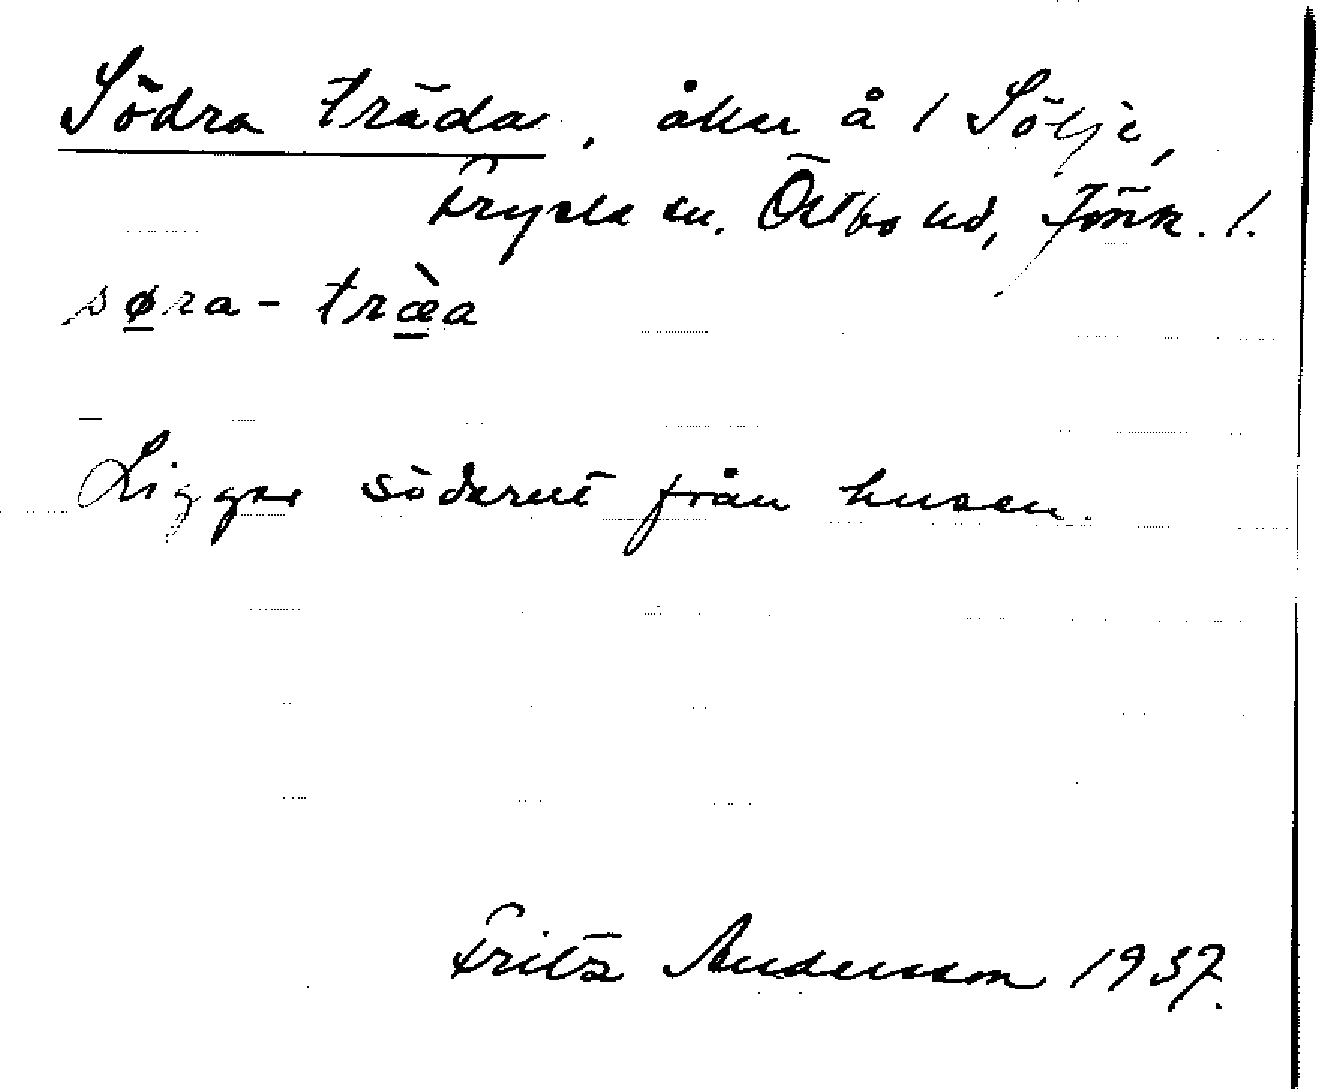 Södra träda, åker å 1 Sölje,
Fryele sn. Östbo hd, Jönk. l.
søra - træ̀a
Ligger söderut från husen.
Fritz Andersson 1937.